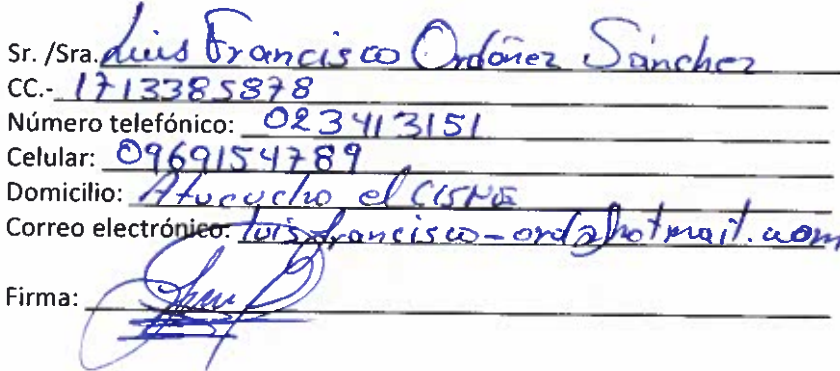 Sr. /Sra. Luis Francisco Ordóñez Sánchez
CC.- 1713385878
Número telefónico: 023413151
Celular: 0969154789
Domicilio: Atucucho el CISNE
Correo electrónico: luisfrancisco-ord@hotmail.com
Firma: